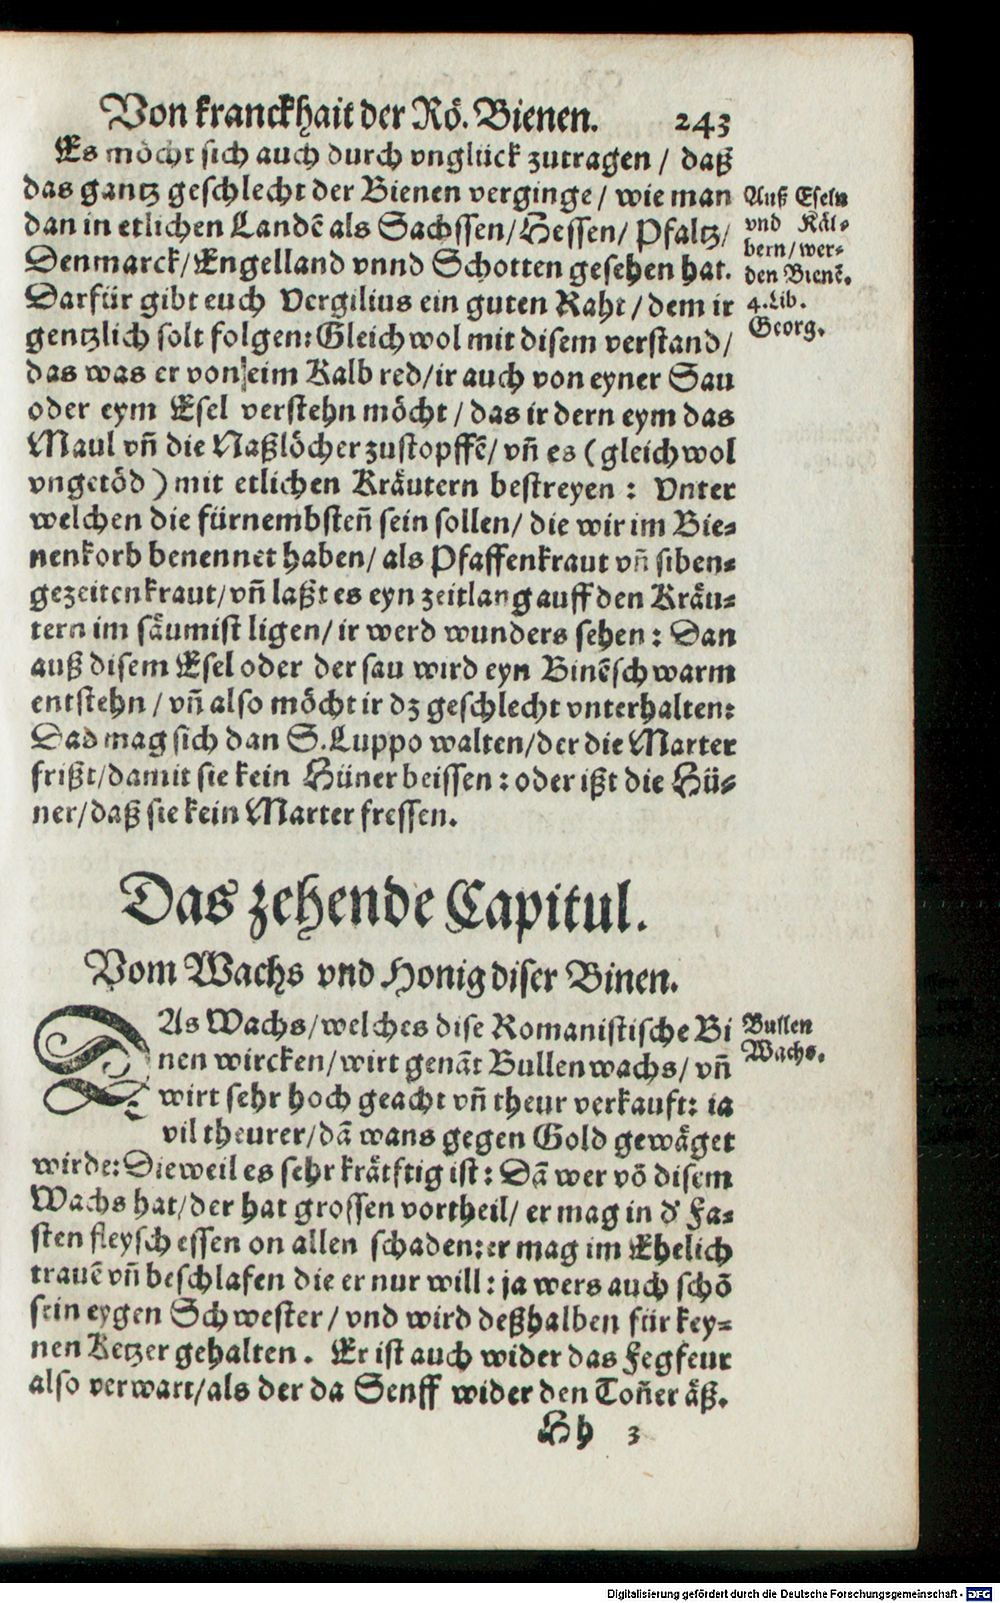 Von kranckhait der Rö. Bienen. 243
Es möcht sich auch durch vnglück zutragen / daß
das gantz geschlecht der Bienen verginge / wie man
dan in etlichen Landẽ als Sachssen / Hessen / Pfaltz /
Denmarck / Engelland vnnd Schotten gesehen hat.
Darfür gibt euch Vergilius ein guten Raht / dem ir
gentzlich solt folgen: Gleich wol mit disem verstand /
das was er von eim Kalb red / ir auch von eyner Sau
oder eym Esel verstehn möcht / das ir dern eym das
Maul vñ die Naßlöcher zustopffẽ / vñ es (gleich wol
vngetöd) mit etlichen Kräutern bestreyen : Vnter
welchen die fürnembsteñ sein sollen / die wir im Bie-
nenkorb benennet haben / als Pfaffenkraut vñ siben-
gezeitenkraut / vñ laßt es eyn zeitlang auff den Kräu-
tern im säumist ligen / ir werd wunders sehen : Dan
auß disem Esel oder der sau wird eyn Binẽschwarm
entstehn / vñ also möcht ir dz geschlecht vnterhalten:
Dad mag sich dan S. Luppo walten / der die Marter
frißt / damit sie kein Hüner beissen : oder ißt die Hü-
ner / daß sie kein Marter fressen.
Auß Eseln
vnd Käl-
bern / wer-
den Bienẽ.
4. Lib.
Georg.
Das zehende Capitul.
Vom Wachs vnd Honig diser Binen.
DAs Wachs / welches dise Romanistische Bi
nen wircken / wirt genãt Bullenwachs / vñ
wirt sehr hoch geacht vñ theur verkauft: ia
vil theurer / dã wans gegen Gold gewäget
wirde: Dieweil es sehr krätftig ist : Dã wer võ disem
Wachs hat / der hat grossen vortheil / er mag in d' Fa-
sten fleysch essen on allen schaden: er mag im Ehelich
trauẽ vñ beschlafen die er nur will : ja wers auch schõ
sein eygen Schwester / vnd wird deßhalben für key-
nen Ketzer gehalten. Er ist auch wider das Fegfeur
also verwart / als der da Senff wider den Toñer äß.
Bullen
Wachs.
Hh 3
Digitalisierung gefördert durch die Deutsche Forschungsgemeinschaft - DFG